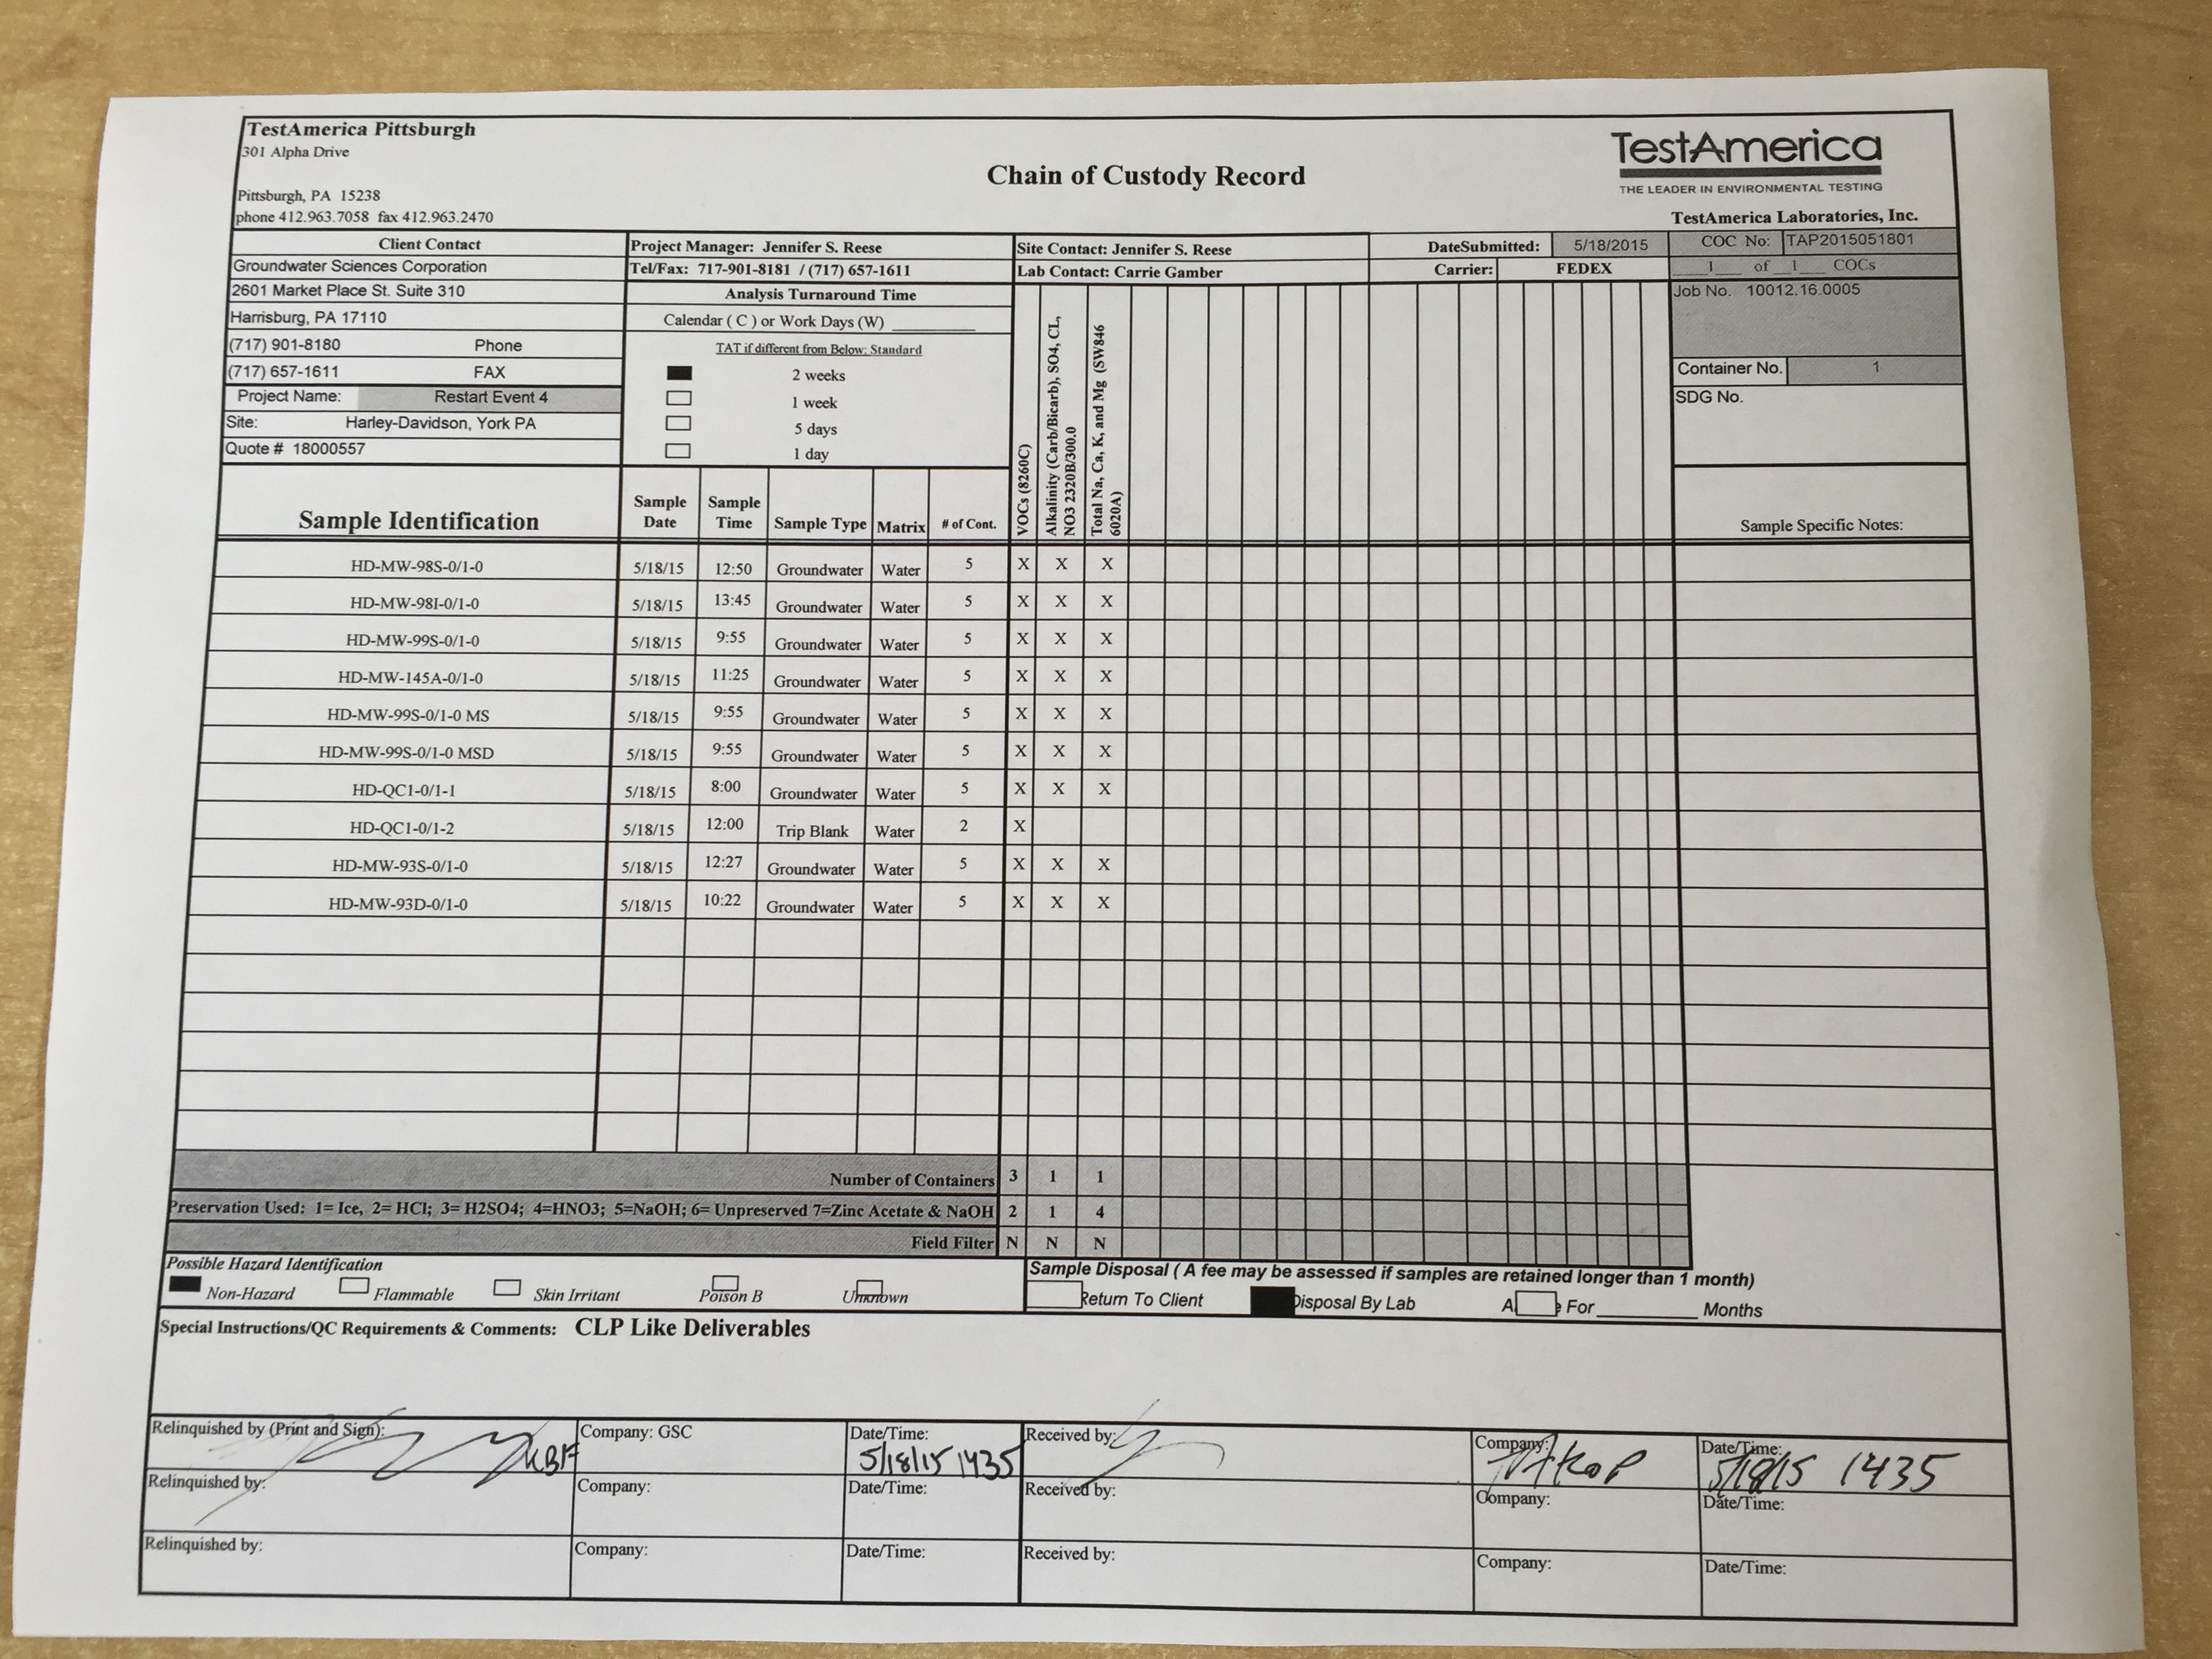 TestAmerica Pittsburgh
301 Alpha Drive
Pittsburgh, PA 15238
phone 412.963.7058 fax 412.963.2470
Chain of Custody Record
TestAmerica
THE LEADER IN ENVIRONMENTAL TESTING
TestAmerica Laboratories, Inc.
Client Contact
Project Manager: Jennifer S. Reese
Site Contact: Jennifer S. Reese
DateSubmitted: 5/18/2015
COC No: TAP2015051801
Groundwater Sciences Corporation
Tel/Fax: 717-901-8181 / (717) 657-1611
Lab Contact: Carrie Gamber
Carrier: FEDEX
1 of 1 COCs
2601 Market Place St. Suite 310
Harrisburg, PA 17110
(717) 901-8180 Phone
(717) 657-1611 FAX
Project Name: Restart Event 4
Site: Harley-Davidson, York PA
Quote # 18000557
Analysis Turnaround Time
Calendar ( C ) or Work Days (W)
TAT if different from Below: Standard
2 weeks
1 week
5 days
1 day
VOCs (8260C)
Alkalinity (Carb/Bicarb), SO4, CL,
NO3 2320B/300.0
Total Na, Ca, K, and Mg (SW846
6020A)
Job No. 10012.16.0005
Container No. 1
SDG No.
Sample Identification Sample Date Sample Time Sample Type Matrix # of Cont. Sample Specific Notes:
HD-MW-98S-0/1-0 5/18/15 12:50 Groundwater Water 5 X X X
HD-MW-98I-0/1-0 5/18/15 13:45 Groundwater Water 5 X X X
HD-MW-99S-0/1-0 5/18/15 9:55 Groundwater Water 5 X X X
HD-MW-145A-0/1-0 5/18/15 11:25 Groundwater Water 5 X X X
HD-MW-99S-0/1-0 MS 5/18/15 9:55 Groundwater Water 5 X X X
HD-MW-99S-0/1-0 MSD 5/18/15 9:55 Groundwater Water 5 X X X
HD-QC1-0/1-1 5/18/15 8:00 Groundwater Water 5 X X X
HD-QC1-0/1-2 5/18/15 12:00 Trip Blank Water 2 X
HD-MW-93S-0/1-0 5/18/15 12:27 Groundwater Water 5 X X X
HD-MW-93D-0/1-0 5/18/15 10:22 Groundwater Water 5 X X X
Number of Containers 3 1 1
Preservation Used: 1= Ice, 2= HCl; 3= H2SO4; 4=HNO3; 5=NaOH; 6= Unpreserved 7=Zinc Acetate & NaOH 2 1 4
Field Filter N N N
Possible Hazard Identification
Non-Hazard Flammable Skin Irritant Poison B Unknown
Sample Disposal ( A fee may be assessed if samples are retained longer than 1 month)
Return To Client Disposal By Lab For Months
Special Instructions/QC Requirements & Comments: CLP Like Deliverables
Relinquished by (Print and Sign): Company: GSC Date/Time: 5/18/15 1435 Received by: Company: Date/Time: 5/18/15 1435
Relinquished by: Company: Date/Time: Received by: Company: Date/Time:
Relinquished by: Company: Date/Time: Received by: Company: Date/Time: